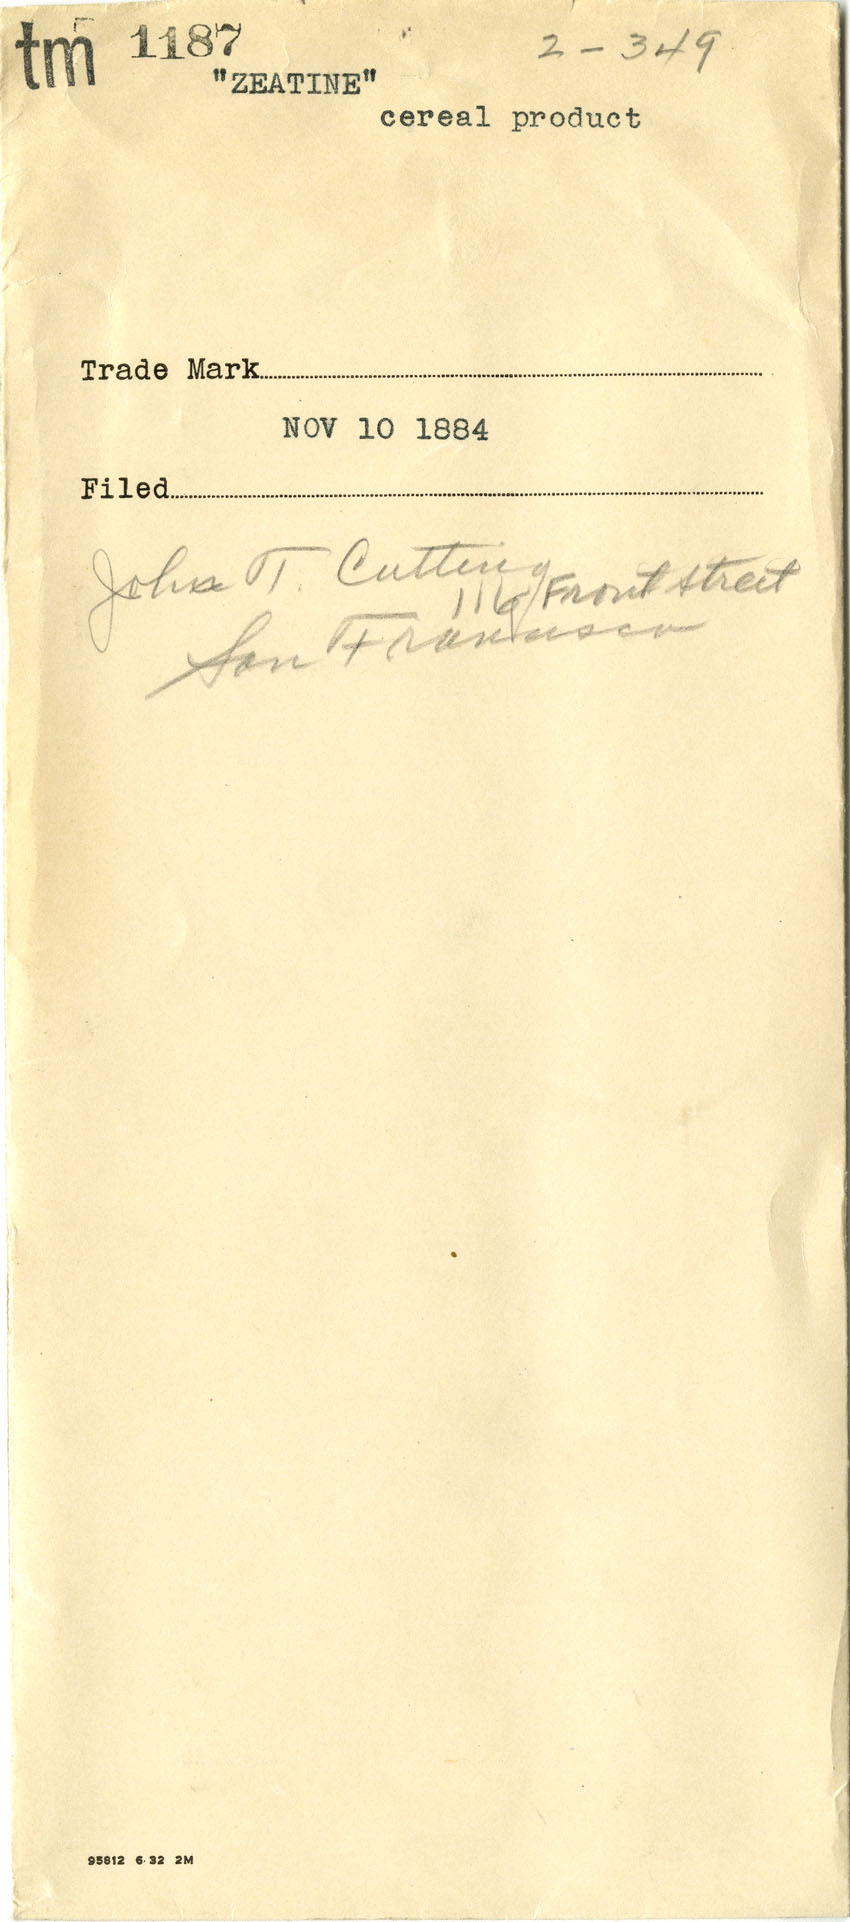 tm 1187 2-349
"ZEATINE"
cereal product
Trade Mark
NOV 10 1884
Filed
John T. Cutting
116 Front Street
San Francisco
95812 6-32 2M